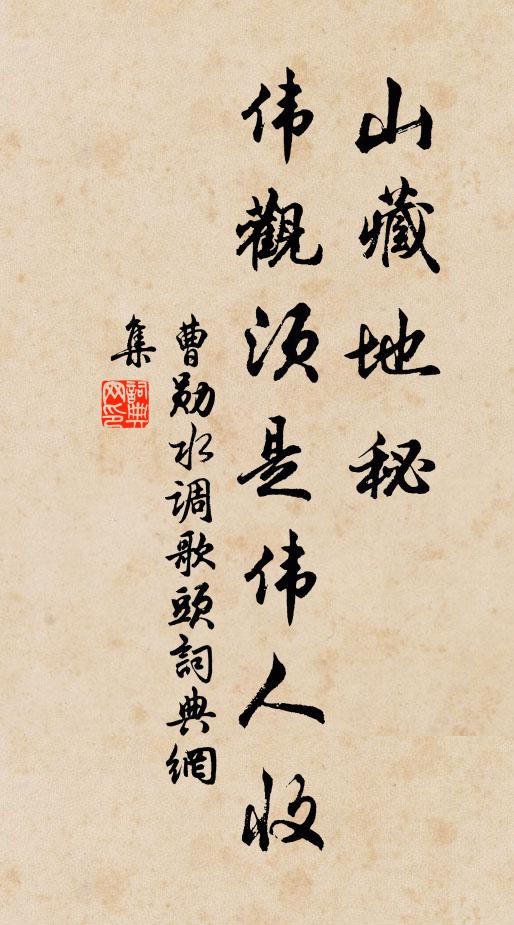 山藏地秘
伟觀须是伟人收
曹勋水调歌頭詞典網
集
詞典网印